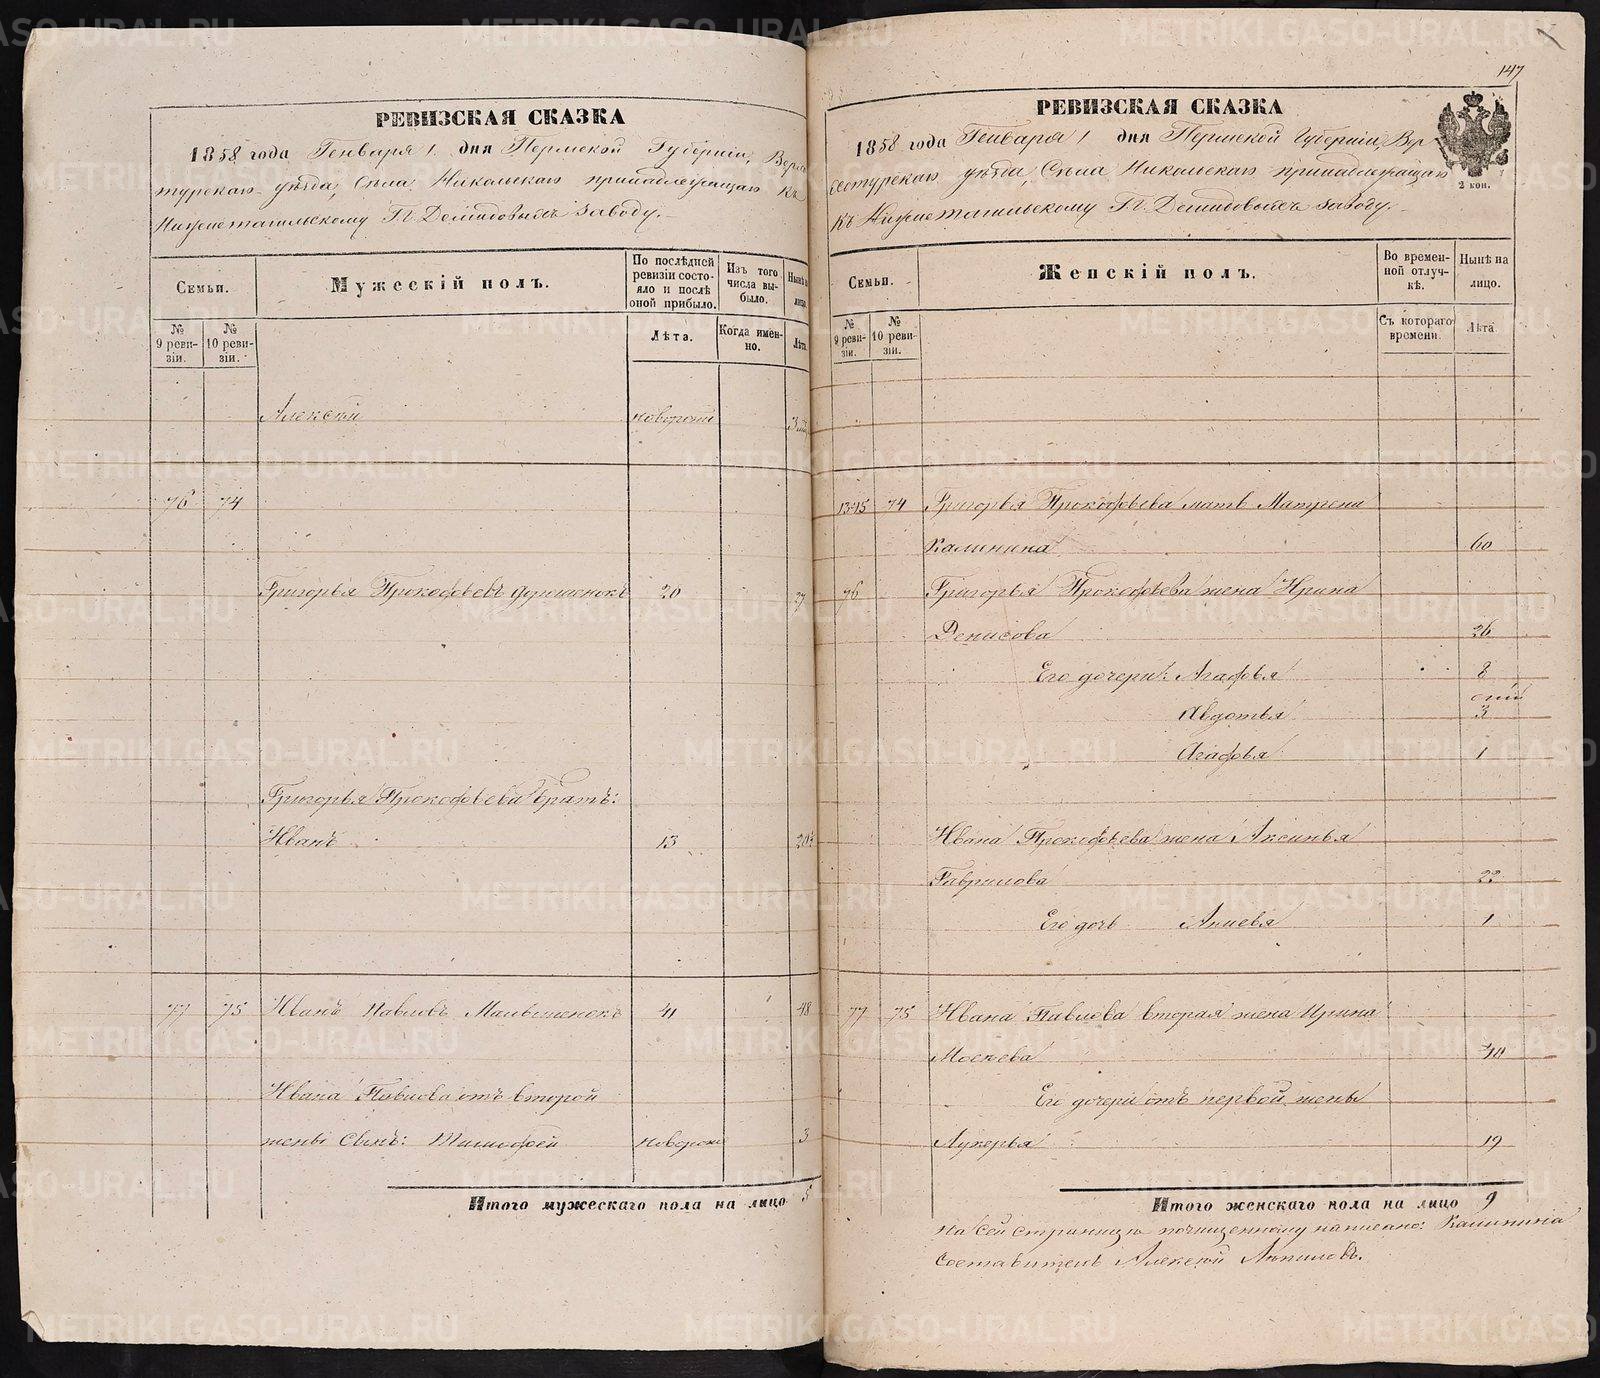 РЕВИЗСКАЯ СКАЗКА
1858 года Генваря 1. дня Пермской Губерніи, Верхо
турскаго уѣзда, Села Никольскаго принадлежащаго къ
Нижнетагильскому Гг. Демидовыхъ заводу.
Семьи.
Мужескій полъ.
По послѣдней ревизіи состояло и послѣ оной прибыло.
Изъ того числа выбыло.
Нынѣ на лицо.
№ 9 ревизіи.
№ 10 ревизіи.
Лѣта.
Когда именно.
Лѣта.
Алексѣй новорожд
76 74
Григорья Прокофьевъ 20 27
Григорья Прокофьева братъ:
Иванъ 13 20½
77 75 Иванъ Павловъ 41 48
Ивана Павлова отъ второй
жены Сынъ: Тимофей новорож 3
Итого мужескаго пола на лицо 5
147
РЕВИЗСКАЯ СКАЗКА
1858 года Генваря 1 дня Пермской Губерніи, Вер
хотурскаго уѣзда, Села Никольскаго принадлежащаго
2 коп.
къ Нижнетагильскому Гг. Демидовыхъ заводу.
Семьи.
Женскій полъ.
Во временной отлучкѣ.
Нынѣ на лицо.
№ 9 ревизіи.
№ 10 ревизіи.
Съ котораго времени.
Лѣта.
74 Григорья Прокофьева мать Матрена
Калинина 60
76 Григорья Прокофьева жена Ирина
Денисова 26
Его дочери: Агафья 8
Авдотья 3
Агафья 1
Ивана Прокофьева жена Аксинья
Гаврилова 22
Его дочь 1
77 75 Ивана Павлова вторая жена Ирина
Мосѣева 40
Его дочери отъ первой жены
Лукерья 19
Итого женскаго пола на лицо 9
на сей страницѣ почищенному написано: Калинина
Составитель Алексѣй
METRIKI.GASO-URAL.RU